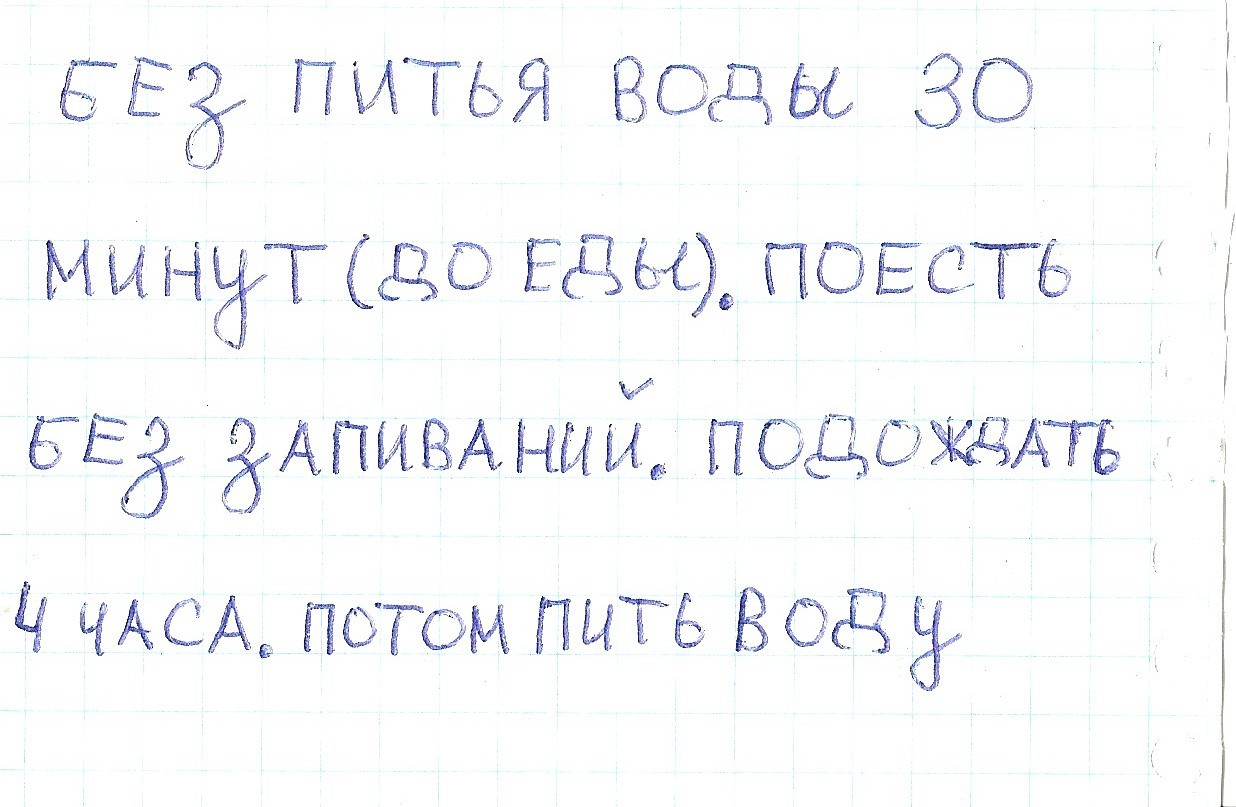 БЕЗ ПИТЬЯ ВОДЫ 30
МИНУТ (ДО ЕДЫ). ПОЕСТЬ
БЕЗ ЗАПИВАНИЙ. ПОДОЖДАТЬ
4 ЧАСА. ПОТОМ ПИТЬ ВОДУ